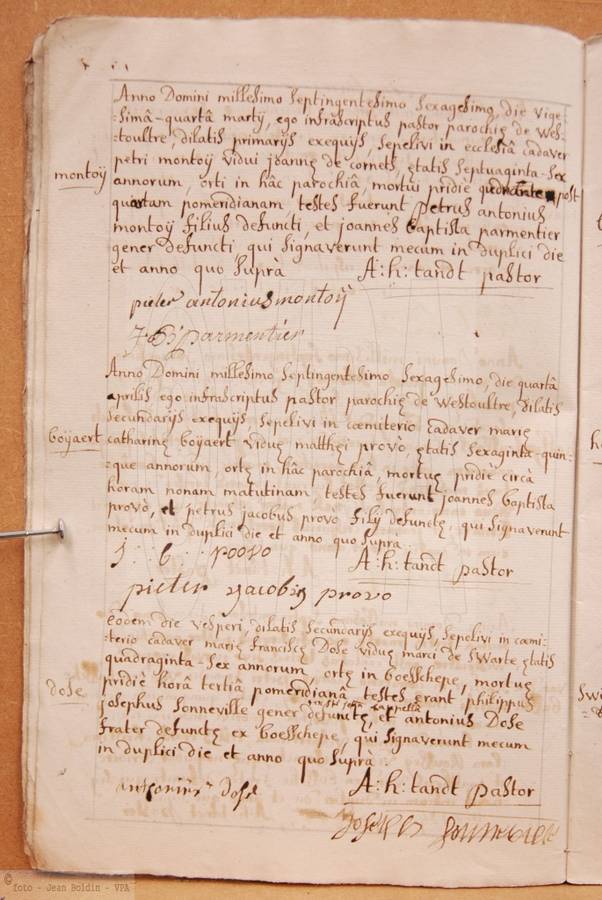 Anno Domini millesimo septingentesimo sexagesimo, die vige-
:simâ-quartâ martÿ, ego infrascriptus pastor parochię de Wes-
:toultre, dilatis primarÿs exequÿs, sepelivi in ecclesiâ cadaver
petri montoÿ vidui joannę de cornets, ętatis septuaginta-sex
montoÿ
annorum, orti in hâc parochiâ, mortui pridie post
quartam pomeridianam, testes fuerunt petrus antonius
montoÿ filius defuncti, et joannes baptista parmentier
gener defuncti, qui signaverunt mecum in duplici die
et anno quo suprà A:h:tandt pastor
pieter antonius montoÿ
J B parmentier
Anno Domini millesimo septingentesimo sexagesimo, die quartâ
aprilis ego infrascriptus pastor parochię de Westoultre, dilatis
secundarÿs exequÿs, sepelivi in cœmiterio cadaver marię
boÿaert
catharinę boÿaert viduę matthęi provò, ętatis sexaginta-quin-
:que annorum, ortę in hâc parochiâ, mortuę pridie circà
horam nonam matutinam, testes fuerunt joannes baptista
provò, et petrus jacobus provò filÿ defunctę, qui signaverunt
mecum in duplici die et anno quo suprà
j : b : provo A:h:tandt pastor
pieter yacobus provo
eodem die vesperi, dilatis secundarÿs exequÿs, sepelivi in cœmi-
:terio cadaver marię franciscę Dose viduę marci de swarte ętatis
quadraginta-sex annorum, ortę in boesschepe, mortuę
dose
pridiè horâ tertiâ pomeridianâ, testes erant philippus
josephus sonneville gener defunctę, et antonius Dose
frater defunctę ex boesschepe, qui signaverunt mecum
in duplici die et anno quo suprà.
antonius dose A:h:tandt pastor
joseph sonneville
© foto - Jean Boldin - VPA